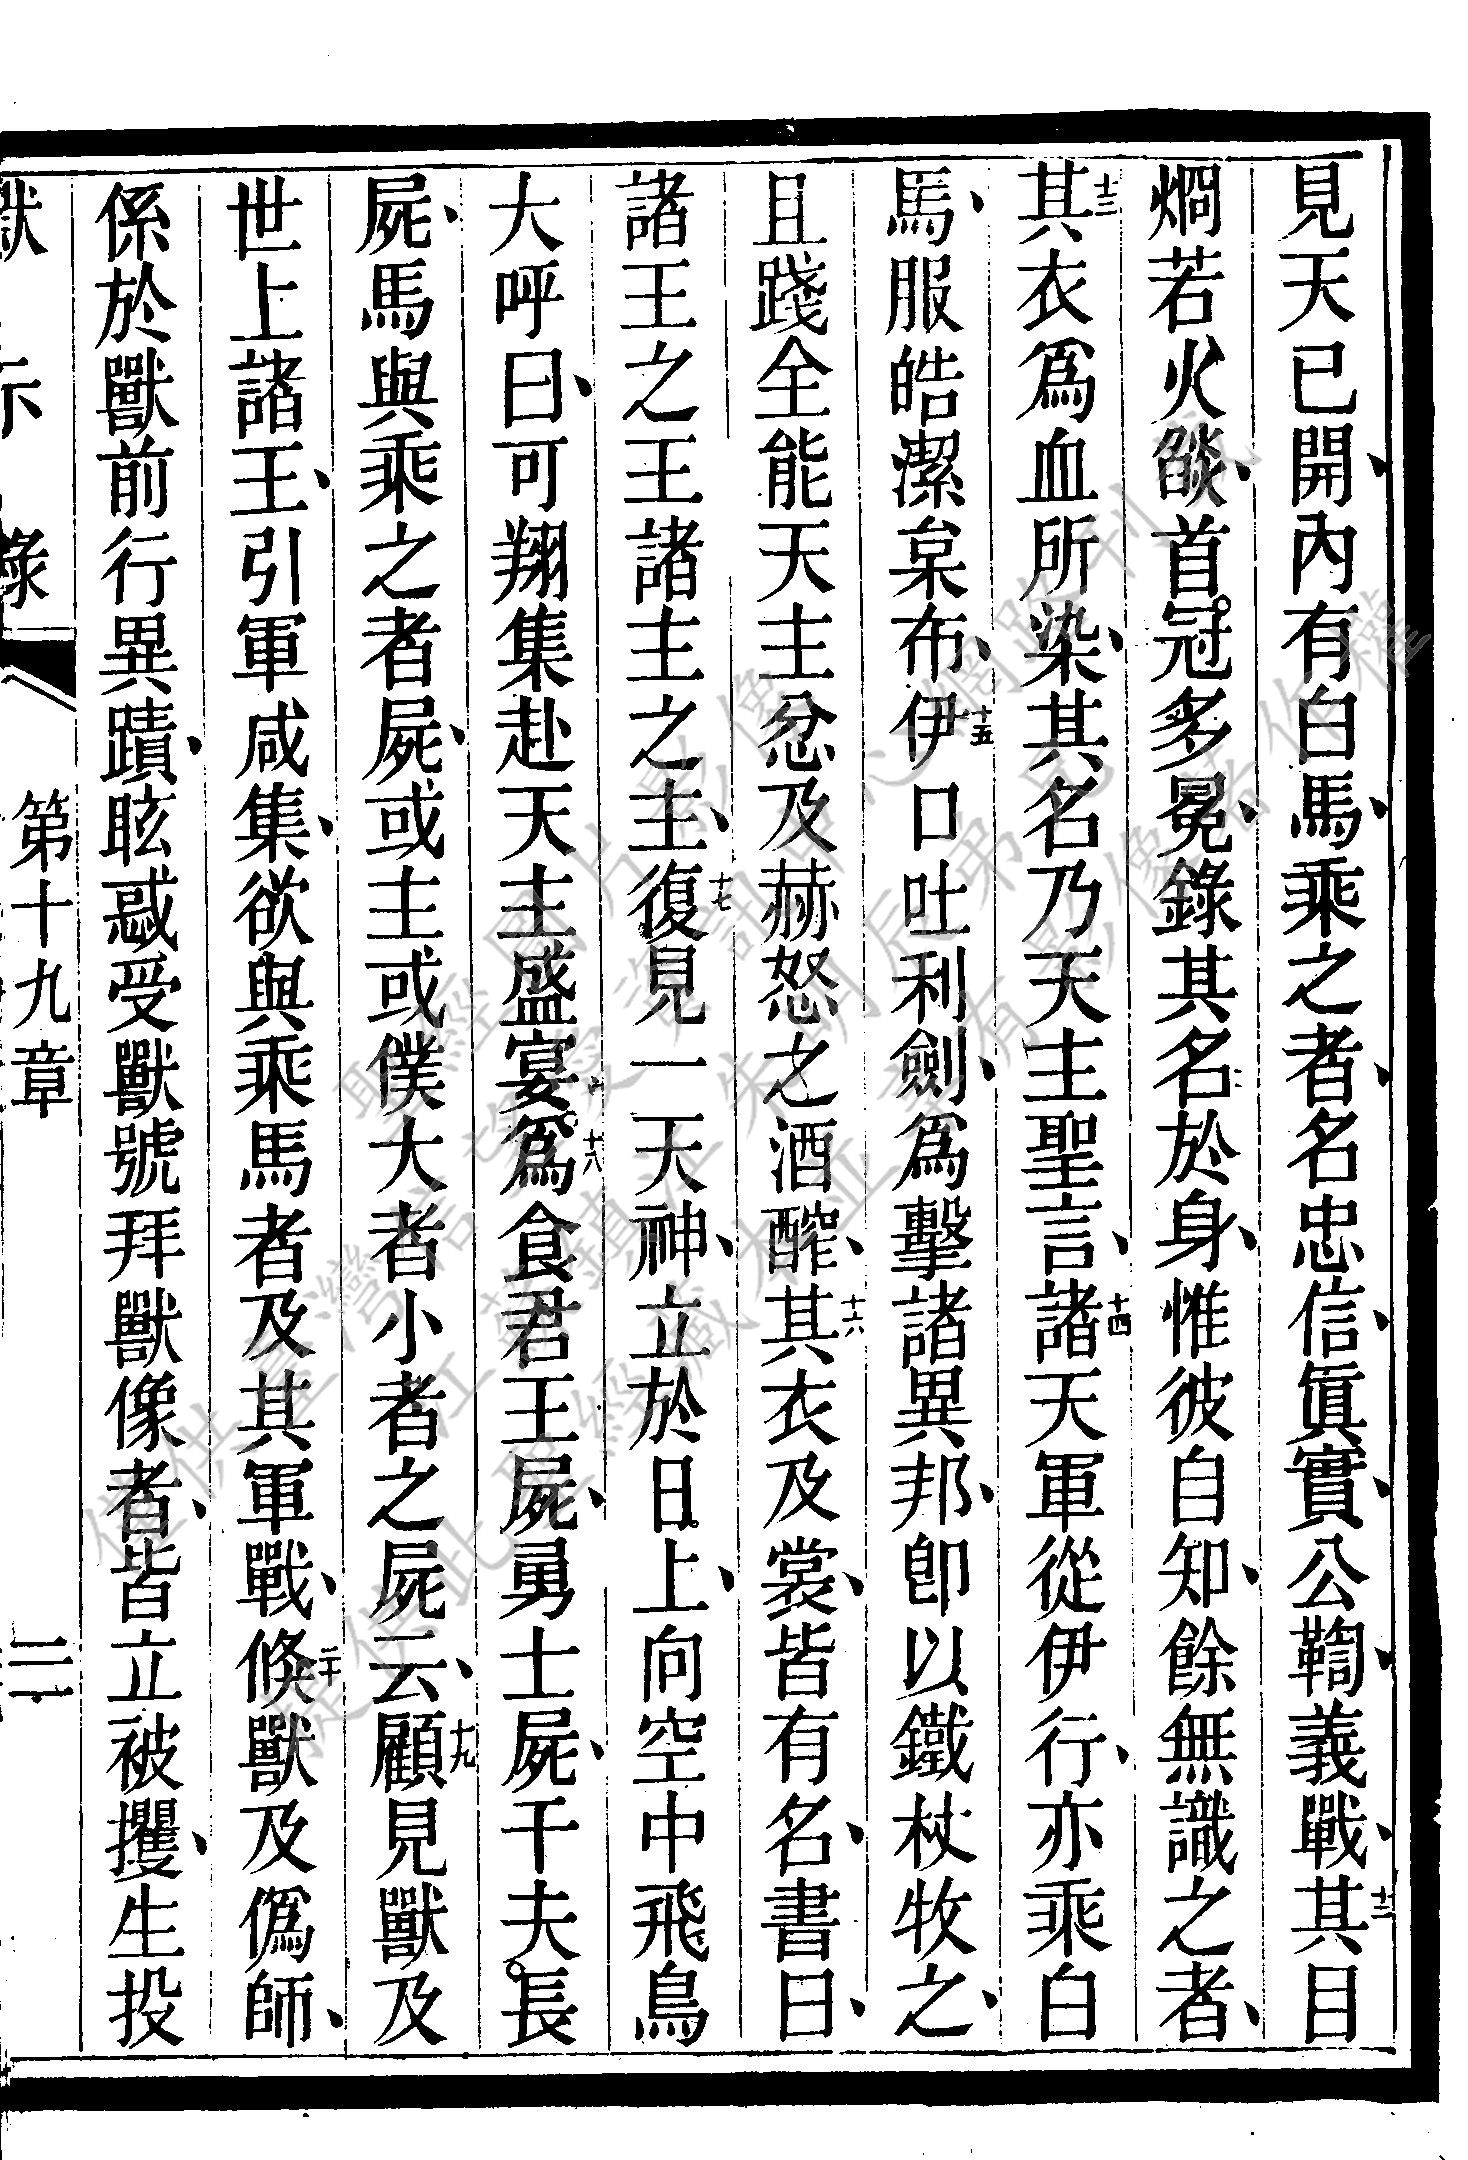 見天已開、內有白馬、乘之者、名忠信、眞實、公鞫、義戰、十二其目
爓若火燄、首冠多冕、錄其名於身、惟彼自知、餘無識之者、
十三其衣爲血所染、其名乃天主聖言、十四諸天軍從伊行、亦乘白
馬、服皓潔枲布、十五伊口吐利劍、爲擊諸異邦、卽以鐵杖牧之、
且踐全能天主忿及赫怒之酒醡、十六其衣及裳、皆有名、書曰、
諸王之王諸主之主、十七復見一天神、立於日上、向空中飛鳥
大呼曰、可翔集赴天主盛宴、十八爲食君王屍、勇士屍、千夫長
屍、馬與乘之者屍、或主或僕大者小者之屍云、十九顧見獸及
世上諸王、引軍咸集、欲與乘馬者及其軍戰、二十倏獸及僞師、
係於獸前行異蹟、眩惑受獸號拜獸像者、皆立被攫、生投
默示錄 第十九章 三